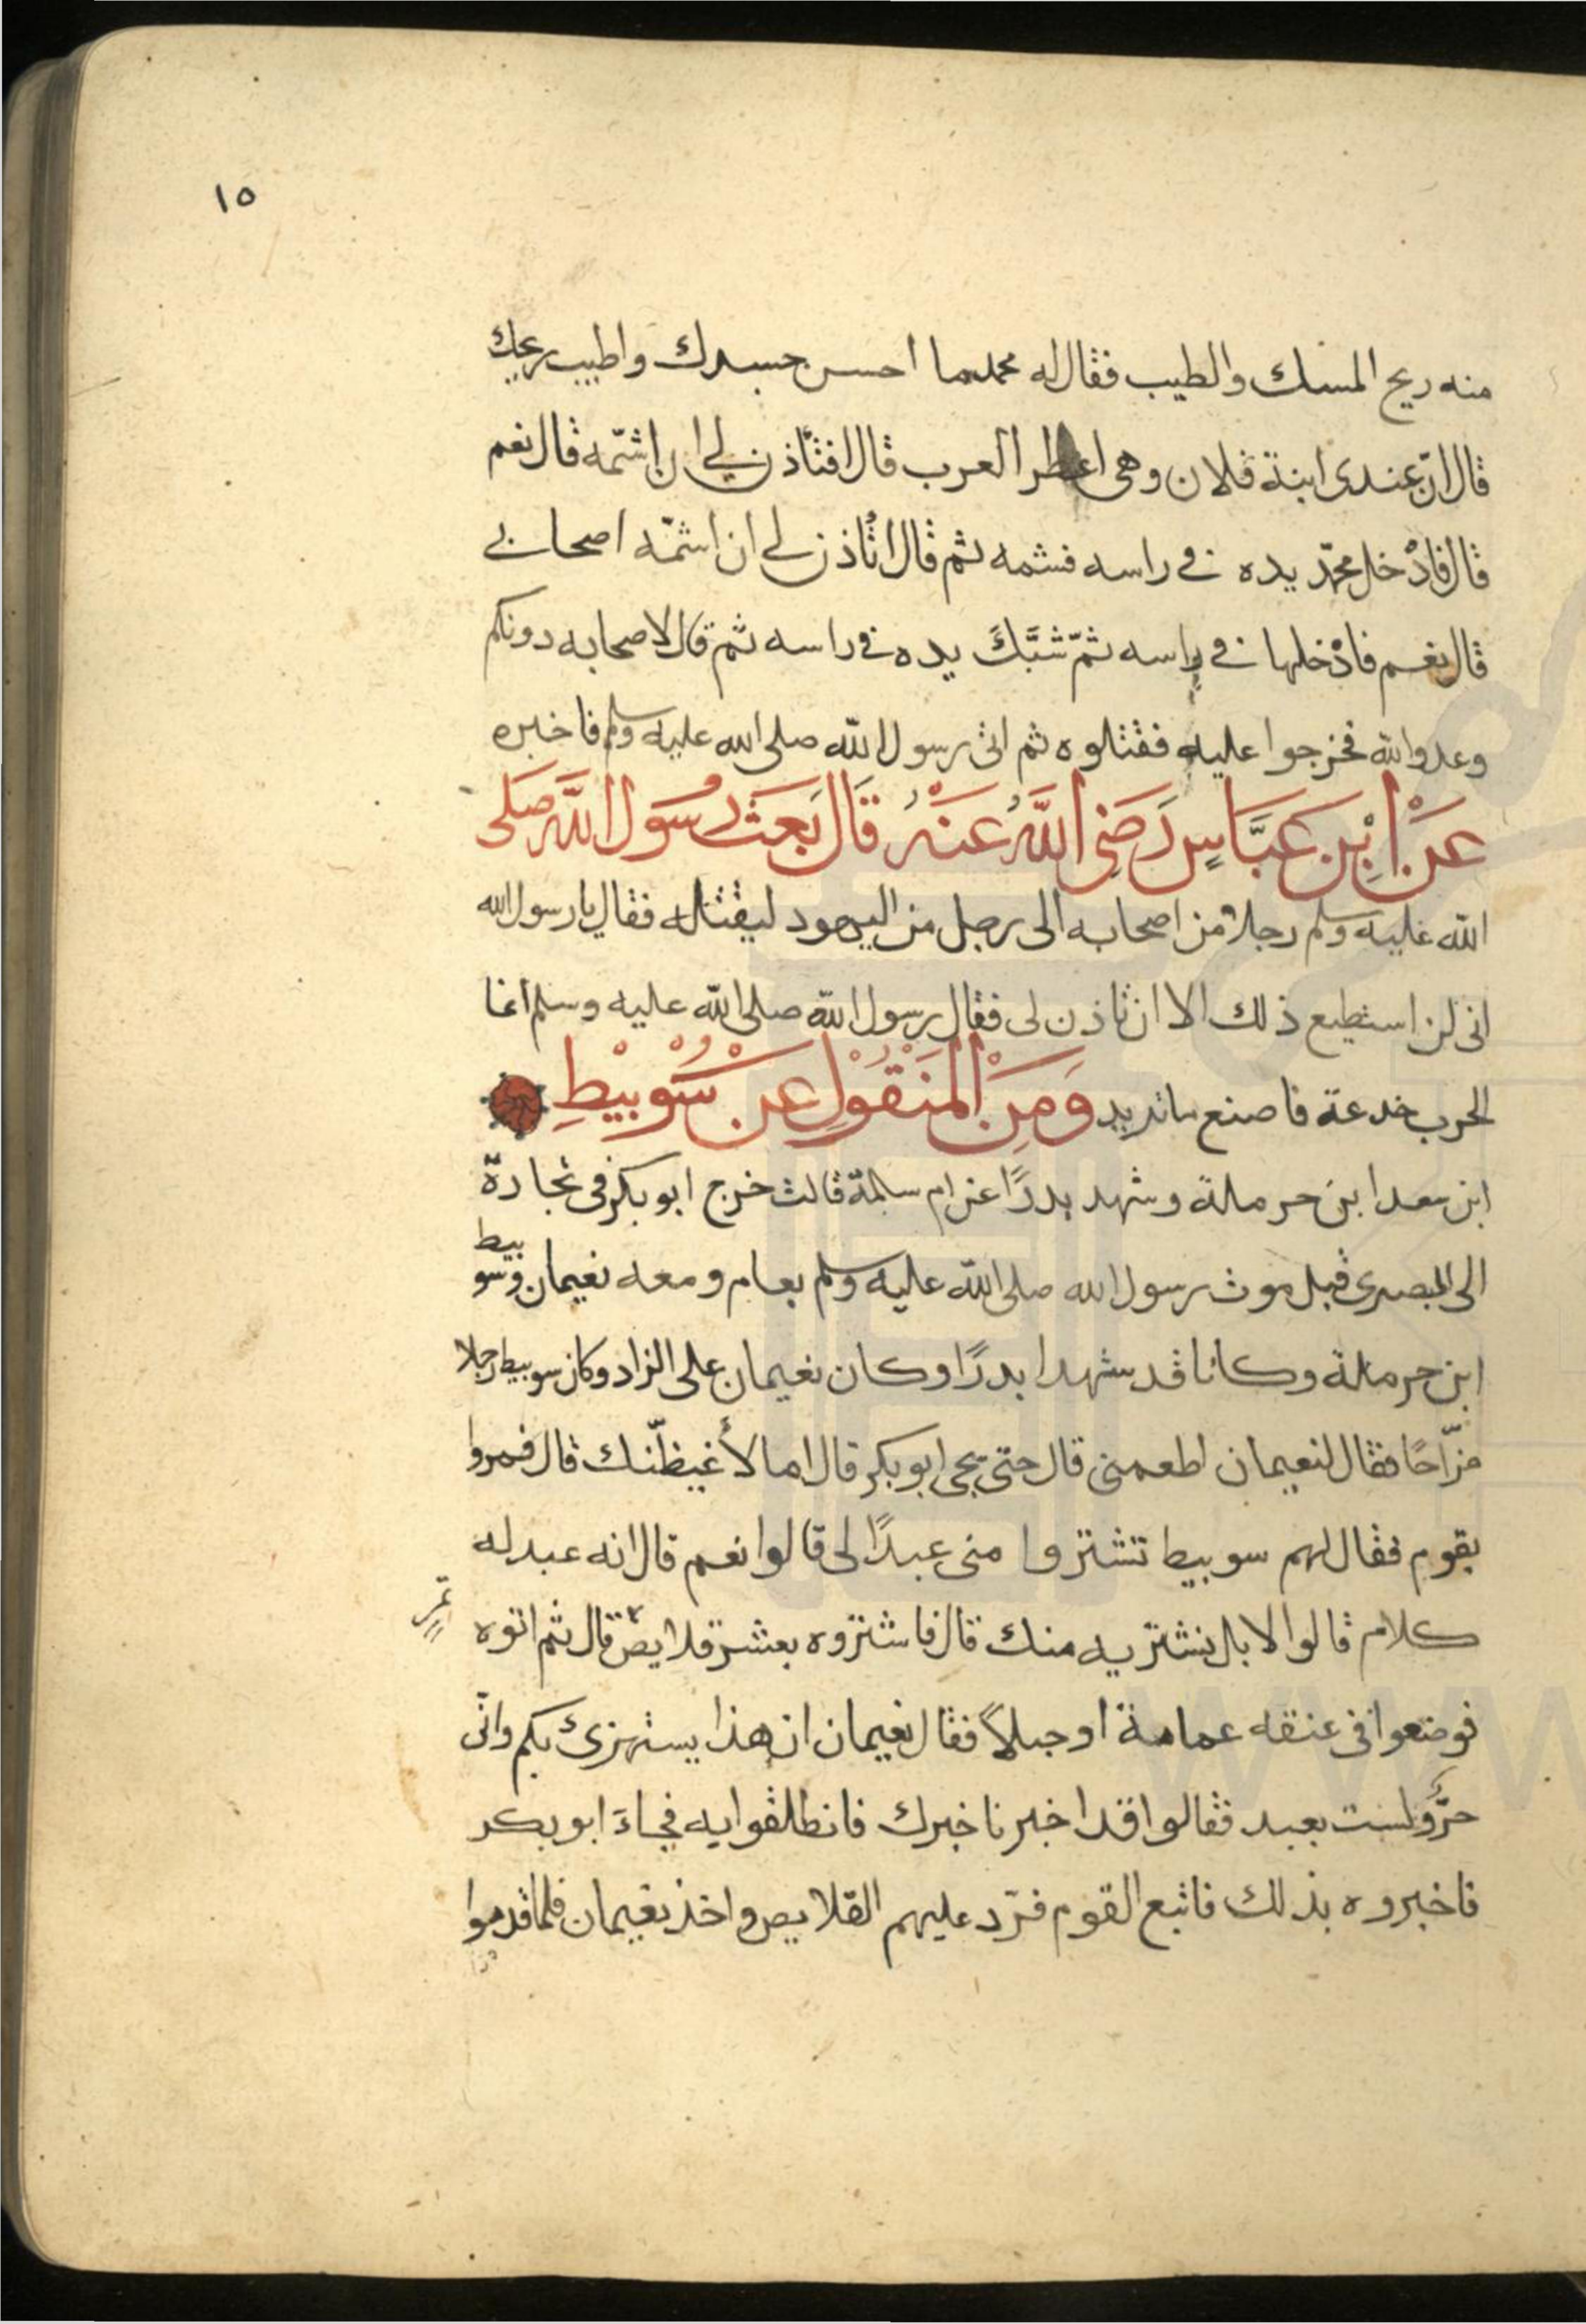 ١٥
منه ريح المسك والطيب فقال له محمد ما احسن جسدك واطيب ريحك
قال ان عندى ابنة فلان وهى اعطر العرب قال افتأذن لي ان اشمّه قال نعم
قال فادْخل محمّد يده في راسه فشمه ثم قال اتأذن لي ان اشمّه اصحابي
قال نعم فادْخلها في راسه ثمّ شبَّكَ يده في راسه ثم قال لاصحابه دونكم
وعدو الله فخرجوا عليه فقتلوه ثم اتى رسول الله صلى الله عليه وسلم فاخبره
عَنْ اِبْنِ عَبَّاسٍ رَضِيَ اللَّهُ عَنْهُ قَالَ بَعَثَ رَسُولُ اللَّهِ صَلَى
الله عليه وسلم رجلا من اصحابه الى رجل من اليهود ليقتله فقال يا رسول الله
انى لن استطيع ذلك الا ان تاذن لى فقال رسول الله صلى الله عليه وسلم انما
الحرب خدعة فاصنع ما تريد وَمِنَ الْمَنْقُولِ عَنْ سُوَيْبِيْطِ
ابن سعد ابن حرملة وشهد بدرًا عن ام سلمة قالت خرج ابو بكر فى تجارة
الى البصرى قبل موت رسول الله صلى الله عليه وسلم بعام ومعه نعيمان وسو
بيط
ابن حرملة وكانا قد شهدا بدرًا وكان نعيمان على الزاد وكان سوبيط رجلا
مزّاحًا فقال لنعيمان اطعمنى قال حتى يجى ابو بكر قال اما لأغيظنّك قال فمروا
بقوم فقال لهم سوبيط تشتروا منى عبدًا لى قالوا نعم قال انه عبد له
كلام قالوا لا بل نشتريه منك قال فاشتروه بعشر قلايص قال ثم اتوه
فوضعوا فى عنقه عمامة او حبلاً فقال نعيمان ان هذا يستهزئ بكم وانّى
حرٌّ ولست بعبد فقالوا قد اخبرنا خبرك فانطلقوا به فجاءَ ابو بكر
فاخبروه بذلك فاتبع القوم فردّ عليهم القلايص واخذ نعيمان فلما قدموا